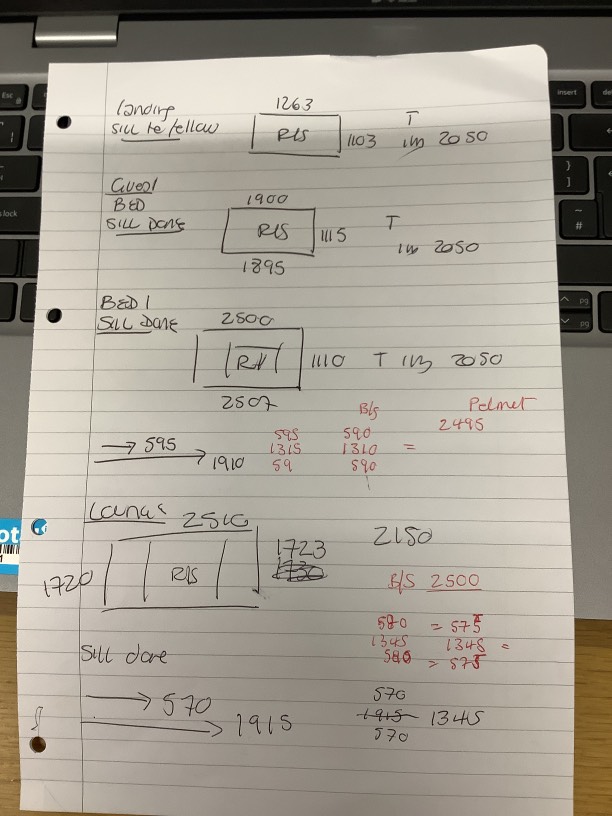 1263
Landing
Sill to follow
R/S
1103
T
2050
Guest
BED
Sill Done
1900
R/S
1115
T
2050
1895
BED 1
Sill Done
2500
1110 T 2050
2507
B/S
Palmet
2495
→ 595
→ 1910
595 590
1315 1310 =
59 590
2510
1720
R/S
1723
2150
B/S 2500
580 = 575
1345 1345 =
580 = 575
Sill done
→ 570
→ 1915
570
1915 1345
570
Esc
insert
lock
pg
pg
#